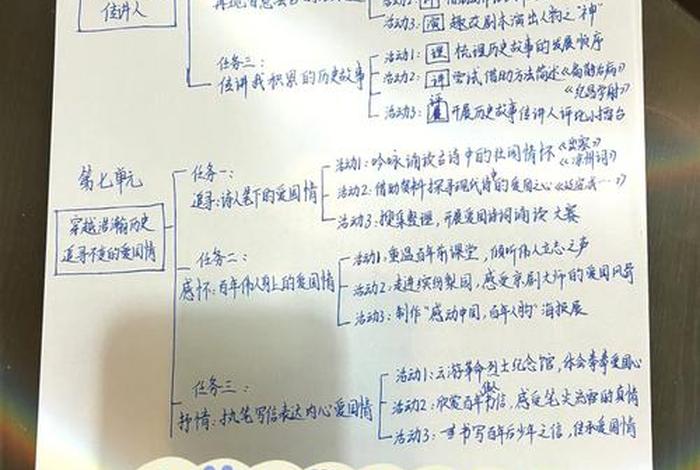 传讲人
活动3：演 趣改剧本演出人物之“神”
任务三：
传讲我积累的历史故事
活动1：理 梳理历史故事的发展顺序
活动2：讲 尝试借助方法简述《扁鹊治病》
《纪昌学射》
活动3：评 展 开展历史故事传讲人评比小擂台
第七单元
穿越浩瀚历史
追寻不变的爱国情
任务一：
追寻：诗人笔下的爱国情
活动1：吟咏诵读古诗中的壮阔情怀《出塞》
《凉州词》
活动2：借助资料探寻现代诗中的爱国之心
活动3：搜集整理，开展爱国诗词诵读大赛
任务二：
感怀：百年伟人身上的爱国情
活动1：重温百年前课堂，倾听伟人立志之声
活动2：走进缤纷梨园，感受京剧大师的爱国风骨
活动3：制作“感动中国，百年人物”海报展
任务三：
抒情：执笔写信表达内心爱国情
活动1：云游革命烈士纪念馆，体会拳拳爱国心
活动2：欣赏百年书信，感受笔尖流露的真情
活动3：书写百年后少年之信，传承爱国情